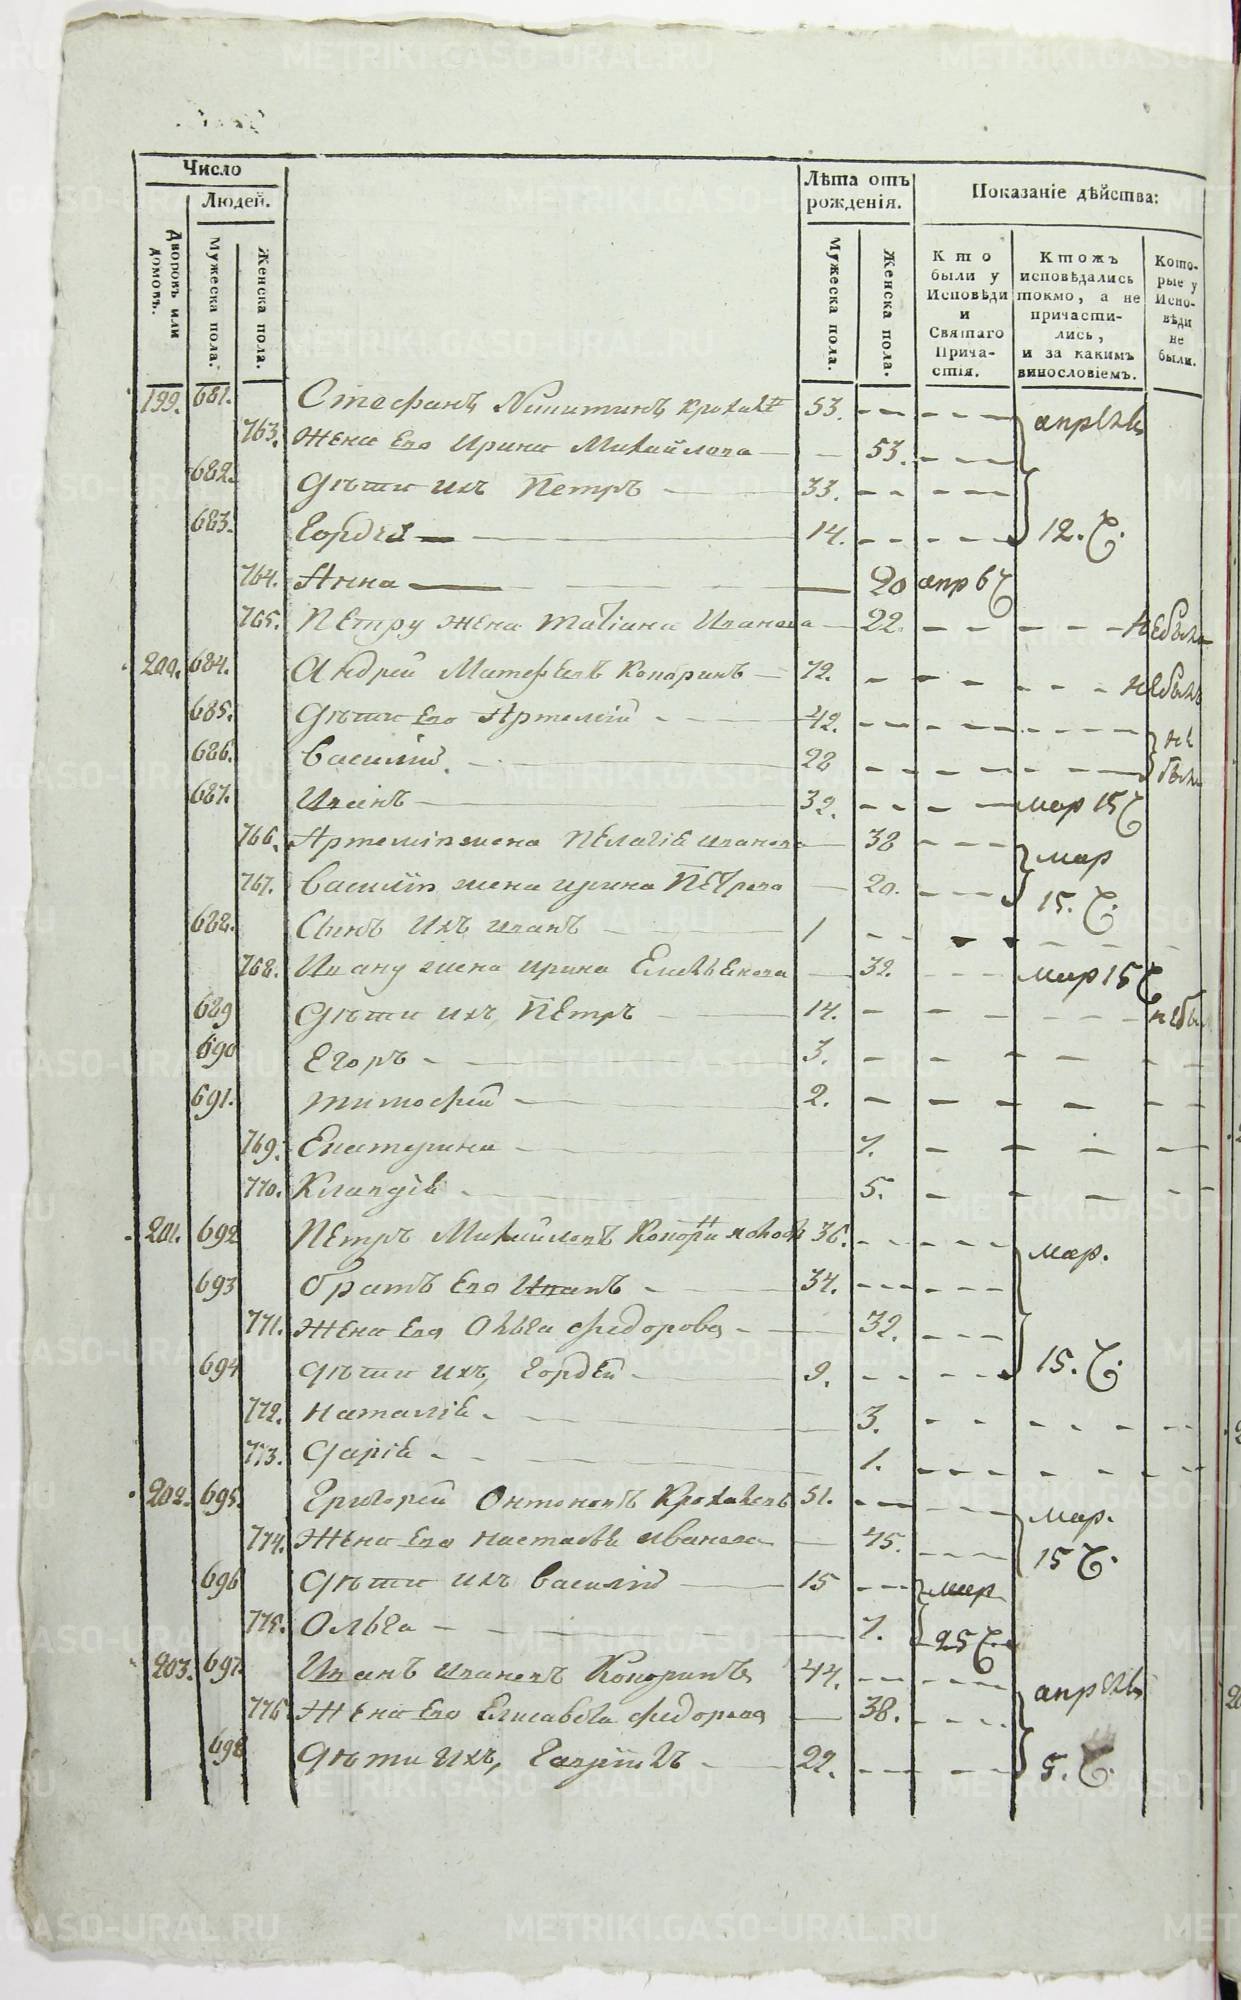 Число
Людей.
Лѣта отъ рожденія.
Показаніе дѣйства:
Дворовъ или домовъ.
Мужеска пола.
Женска пола.
Мужеска пола.
Женска пола.
Кто были у Исповѣди и Святаго Причастія.
Ктожъ исповѣдались токмо, а не причастились, и за какимъ винословіемъ.
Которые у Исповѣди не были.
199. 681. Стефанъ Никитинъ 53. апрѣль
763. Жена Его Ирина Михайлова 53.
682. Дѣти ихъ Петръ 33.
683. Гордей 14. 12. Ч.
764. Анна 20 апр 6 Ч
765. Петру жена Татіана Иванова 22. не была
200. 684. Андрей Матфеевъ Кокоринъ 72. не былъ
685. Дѣти Его Артемій 42. не
686. Василій 28 были
687. Иванъ 32. мар 15 Ч
766. Артемія жена Пелагіе Иванова 38 мар
767. Василія жена Ирина Петрова 20. 15. Ч.
688. Сынъ Ихъ Иванъ 1
768. Ивану жена Ирина 32. мар 15 Ч
689 Дѣти ихъ, Петръ 14. не былъ
690 Егоръ 3.
691. Тимофей 2.
769. Екатерина 7.
770. Клавдіе 5.
201. 692 Петръ Михайловъ 36. мар.
693 братъ Его Иванъ 34.
771. Жена Его Ольга Федорова 32.
694 Дѣти ихъ, Гордей 9. 15. Ч.
772. Наталіе 3.
773. Даріе 1.
202. 695. Григорей Онтоновъ 51. мар.
774. Жена Его Настасья Иванова 45. 15 Ч.
696 Дѣти ихъ Василій 15 мар
775. Ольга 7. 25 Ч.
203. 697. Иванъ Ивановъ Кокоринъ 44. апрѣль
776. Жена Его Елисавета Федорова 38.
698 Дѣти Ихъ, Гаврійлъ 22. 5. Ч.
METRIKI.GASO-URAL.RU